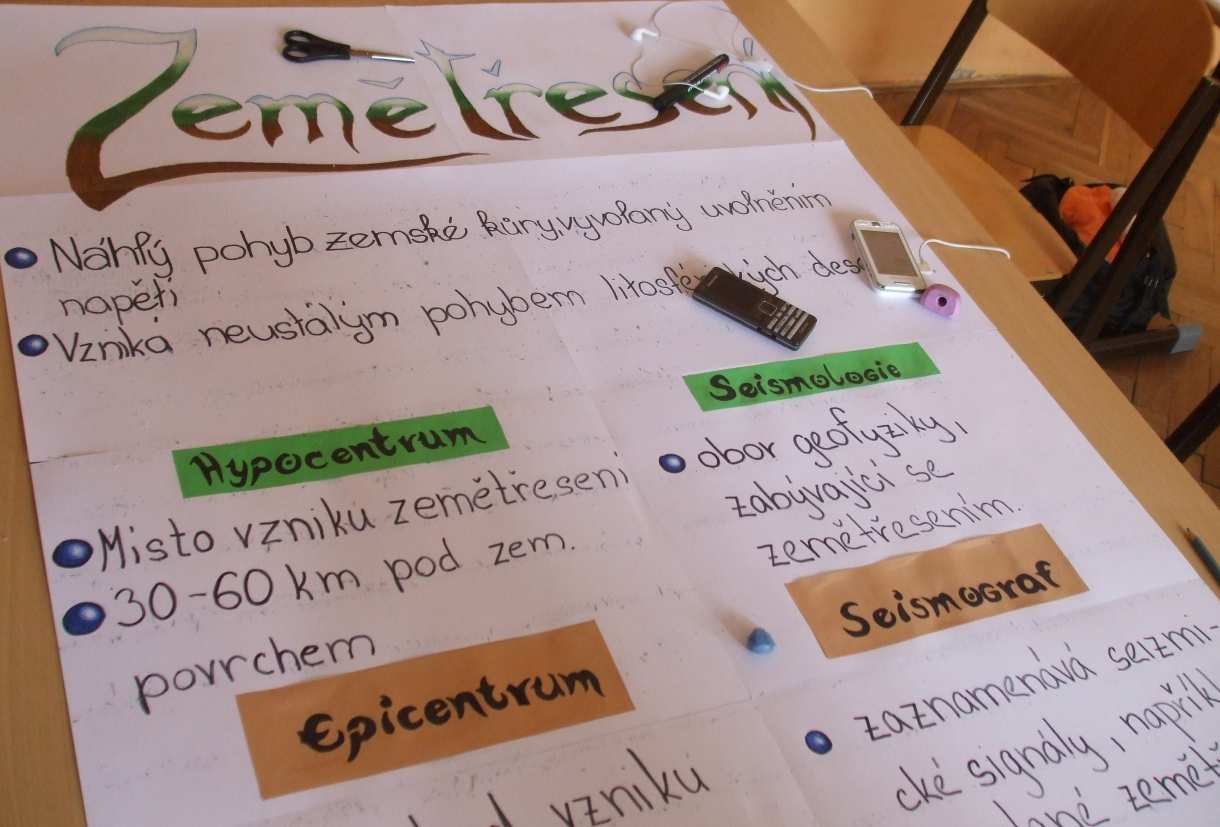 Zemětřesení
Náhlý pohyb zemské kůry, vyvolaný uvolněním
napětí
Vzniká neustálým pohybem litosférických
Hypocentrum
Místo vzniku zemětřesení
30-60 km pod zem.
povrchem
Epicentrum
vzniku
Seismologie
obor geofyziky,
zabývající se
zemětřesením.
Seismograf
zaznamenává seizmi-
cké signály, např